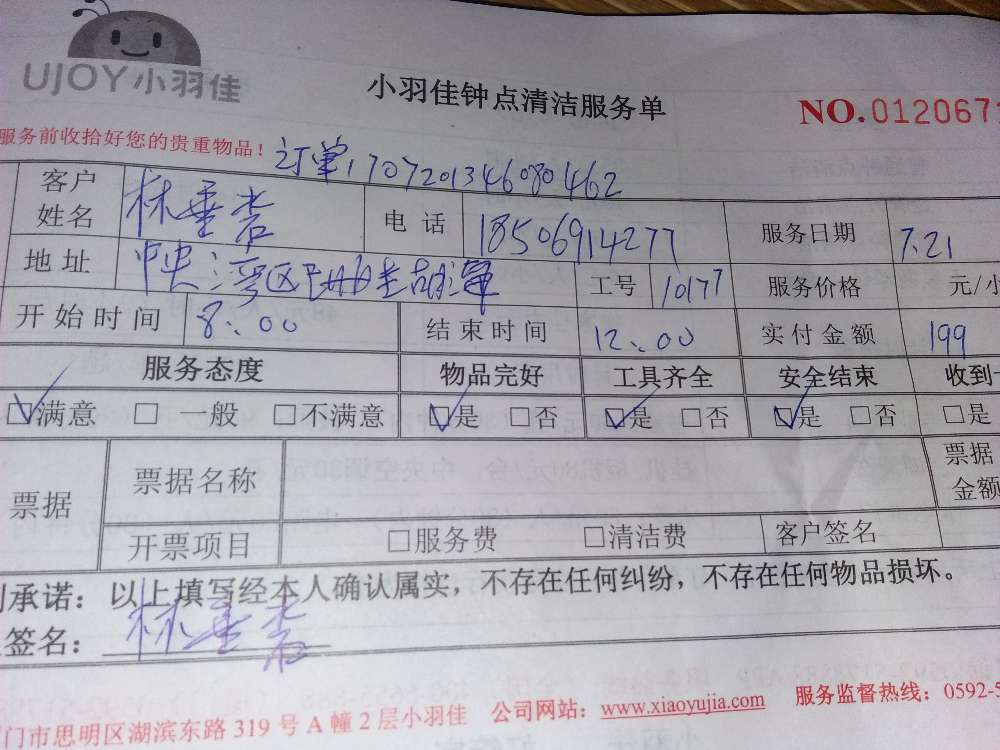 UJOY小羽佳
小羽佳钟点清洁服务单
NO.012067
服务前收拾好您的贵重物品！ 订单170720134608​0462
客户姓名 林 电话 18506914277 服务日期 7.21
地址 中央湾区 工号 10177 服务价格 元/小
开始时间 8:00 结束时间 12:00 实付金额 199
服务态度 物品完好 工具齐全 安全结束 收到
☑满意 □一般 □不满意 ☑是 □否 ☑是 □否 ☑是 □否 □是
票据 票据名称 票据金额
开票项目 □服务费 □清洁费 客户签名
承诺：以上填写经本人确认属实，不存在任何纠纷，不存在任何物品损坏。
签名： 林
门市思明区湖滨东路 319 号 A 幢 2 层小羽佳 公司网站：www.xiaoyujia.com 服务监督热线：0592-5